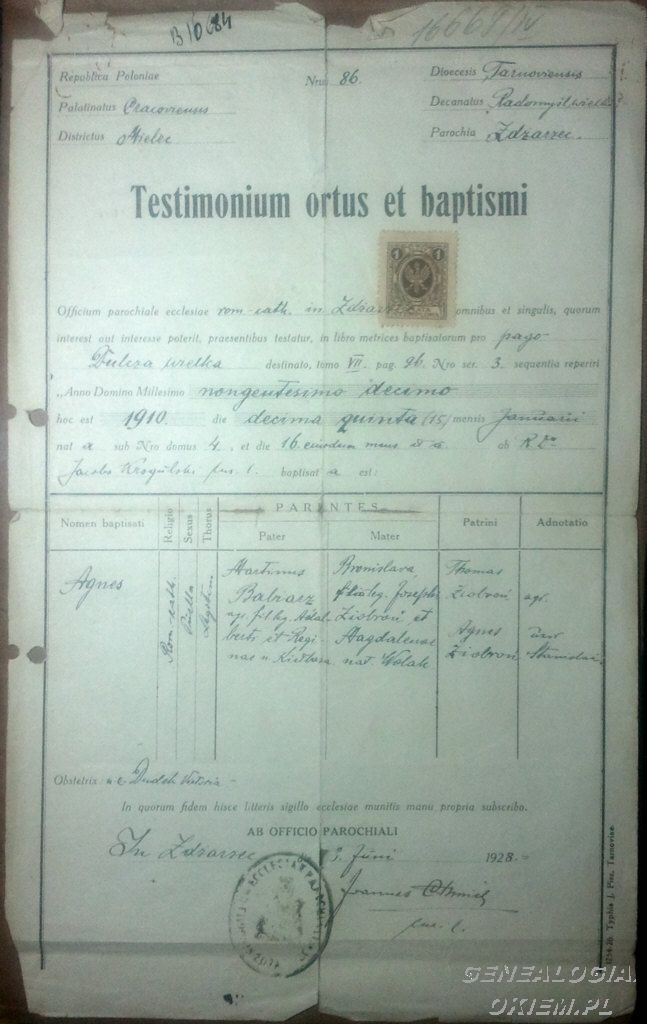 B/0684
16668/IV
Republica Poloniae
Nrus 86.
Dioecesis Tarnoviensis
Palatinatus Cracoviensis
Decanatus Radomyśl wielki
Districtus Mielec
Parochia Zdżarzec.
Testimonium ortus et baptismi
1 1
Officium parochiale ecclesiae rom-cath. in Zdżarzec omnibus et singulis, quorum
interest aut interesse poterit, praesentibus testatur, in libro metrices baptisatorum pro pago
Dulcza wielka destinato, tomo VII. pag. 96. Nro ser. 3. sequentia reperiri
„Anno Domino Millesimo nongentesimo decimo
hoc est 1910. die decima quinta (15) mensis Januarii
nat a sub Nro domus 4., et die 16 ejusdem mens ab R.
Jacobo baptisat a est:
Nomen baptisati
Religio
Sexus
Thorus
PARENTES
Pater
Mater
Patrini
Adnotatio
Agnes
Rom-cath.
Puella
Legitimi
Martinus
Babiarz
ag. fil. lg. Adal
berti et Regi
nae n. Kiełbasa
Bronislava
filia lg. Josephi
Ziobroń et
Magdalenae
nat. Wolak
Thomas
Ziobroń agr.
Agnes uxor
Ziobroń Stanislai
Obstetrix Dudek Victoria
In quorum fidem hisce litteris sigillo ecclesiae munitis manu propria subscribo.
AB OFFICIO PAROCHIALI
In Zdżarzec 9. Juni 1928.
Joannes
Typhis J. Pisz, Tarnoviae.
GENEALOGIA
OKIEM.PL